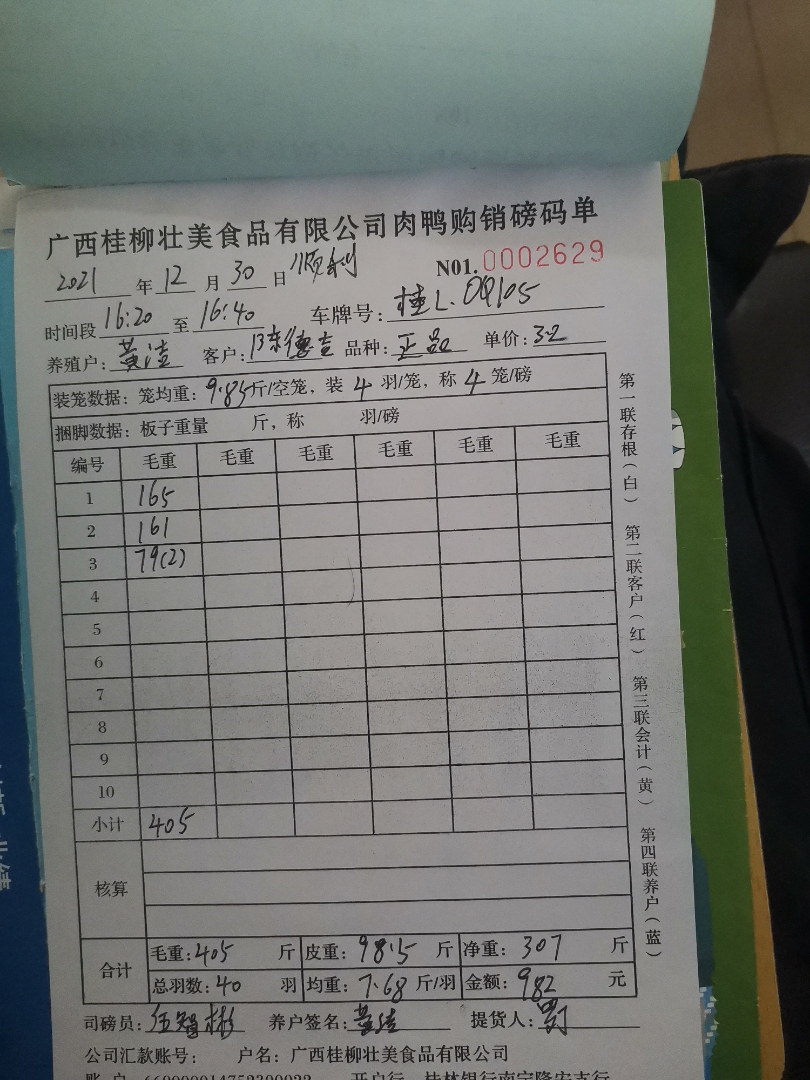 广西桂柳壮美食品有限公司肉鸭购销磅码单
2021 年 12 月 30 日 顺利 N01.0002629
时间段 16:20 至 16:40 车牌号: 桂L·0Q105
养殖户: 黄洁 客户: 陈德吉 品种: 正品 单价: 3.2
装笼数据: 笼均重: 9.85 斤/空笼, 装 4 羽/笼, 称 4 笼/磅
捆脚数据: 板子重量 斤, 称 羽/磅
编号 毛重 毛重 毛重 毛重 毛重 毛重
1 165
2 161
3 79(2)
4
5
6
7
8
9
10
小计 405
核算
合计 毛重: 405 斤 皮重: 98.5 斤 净重: 307 斤
总羽数: 40 羽 均重: 7.68 斤/羽 金额: 982 元
司磅员: 伍智彬 养户签名: 黄洁 提货人:
公司汇款账号: 户名: 广西桂柳壮美食品有限公司
账 户 660000014752300022 开户行 桂林银行南宁隆安支行
第一联存根(白) 第二联客户(红) 第三联会计(黄) 第四联养户(蓝)